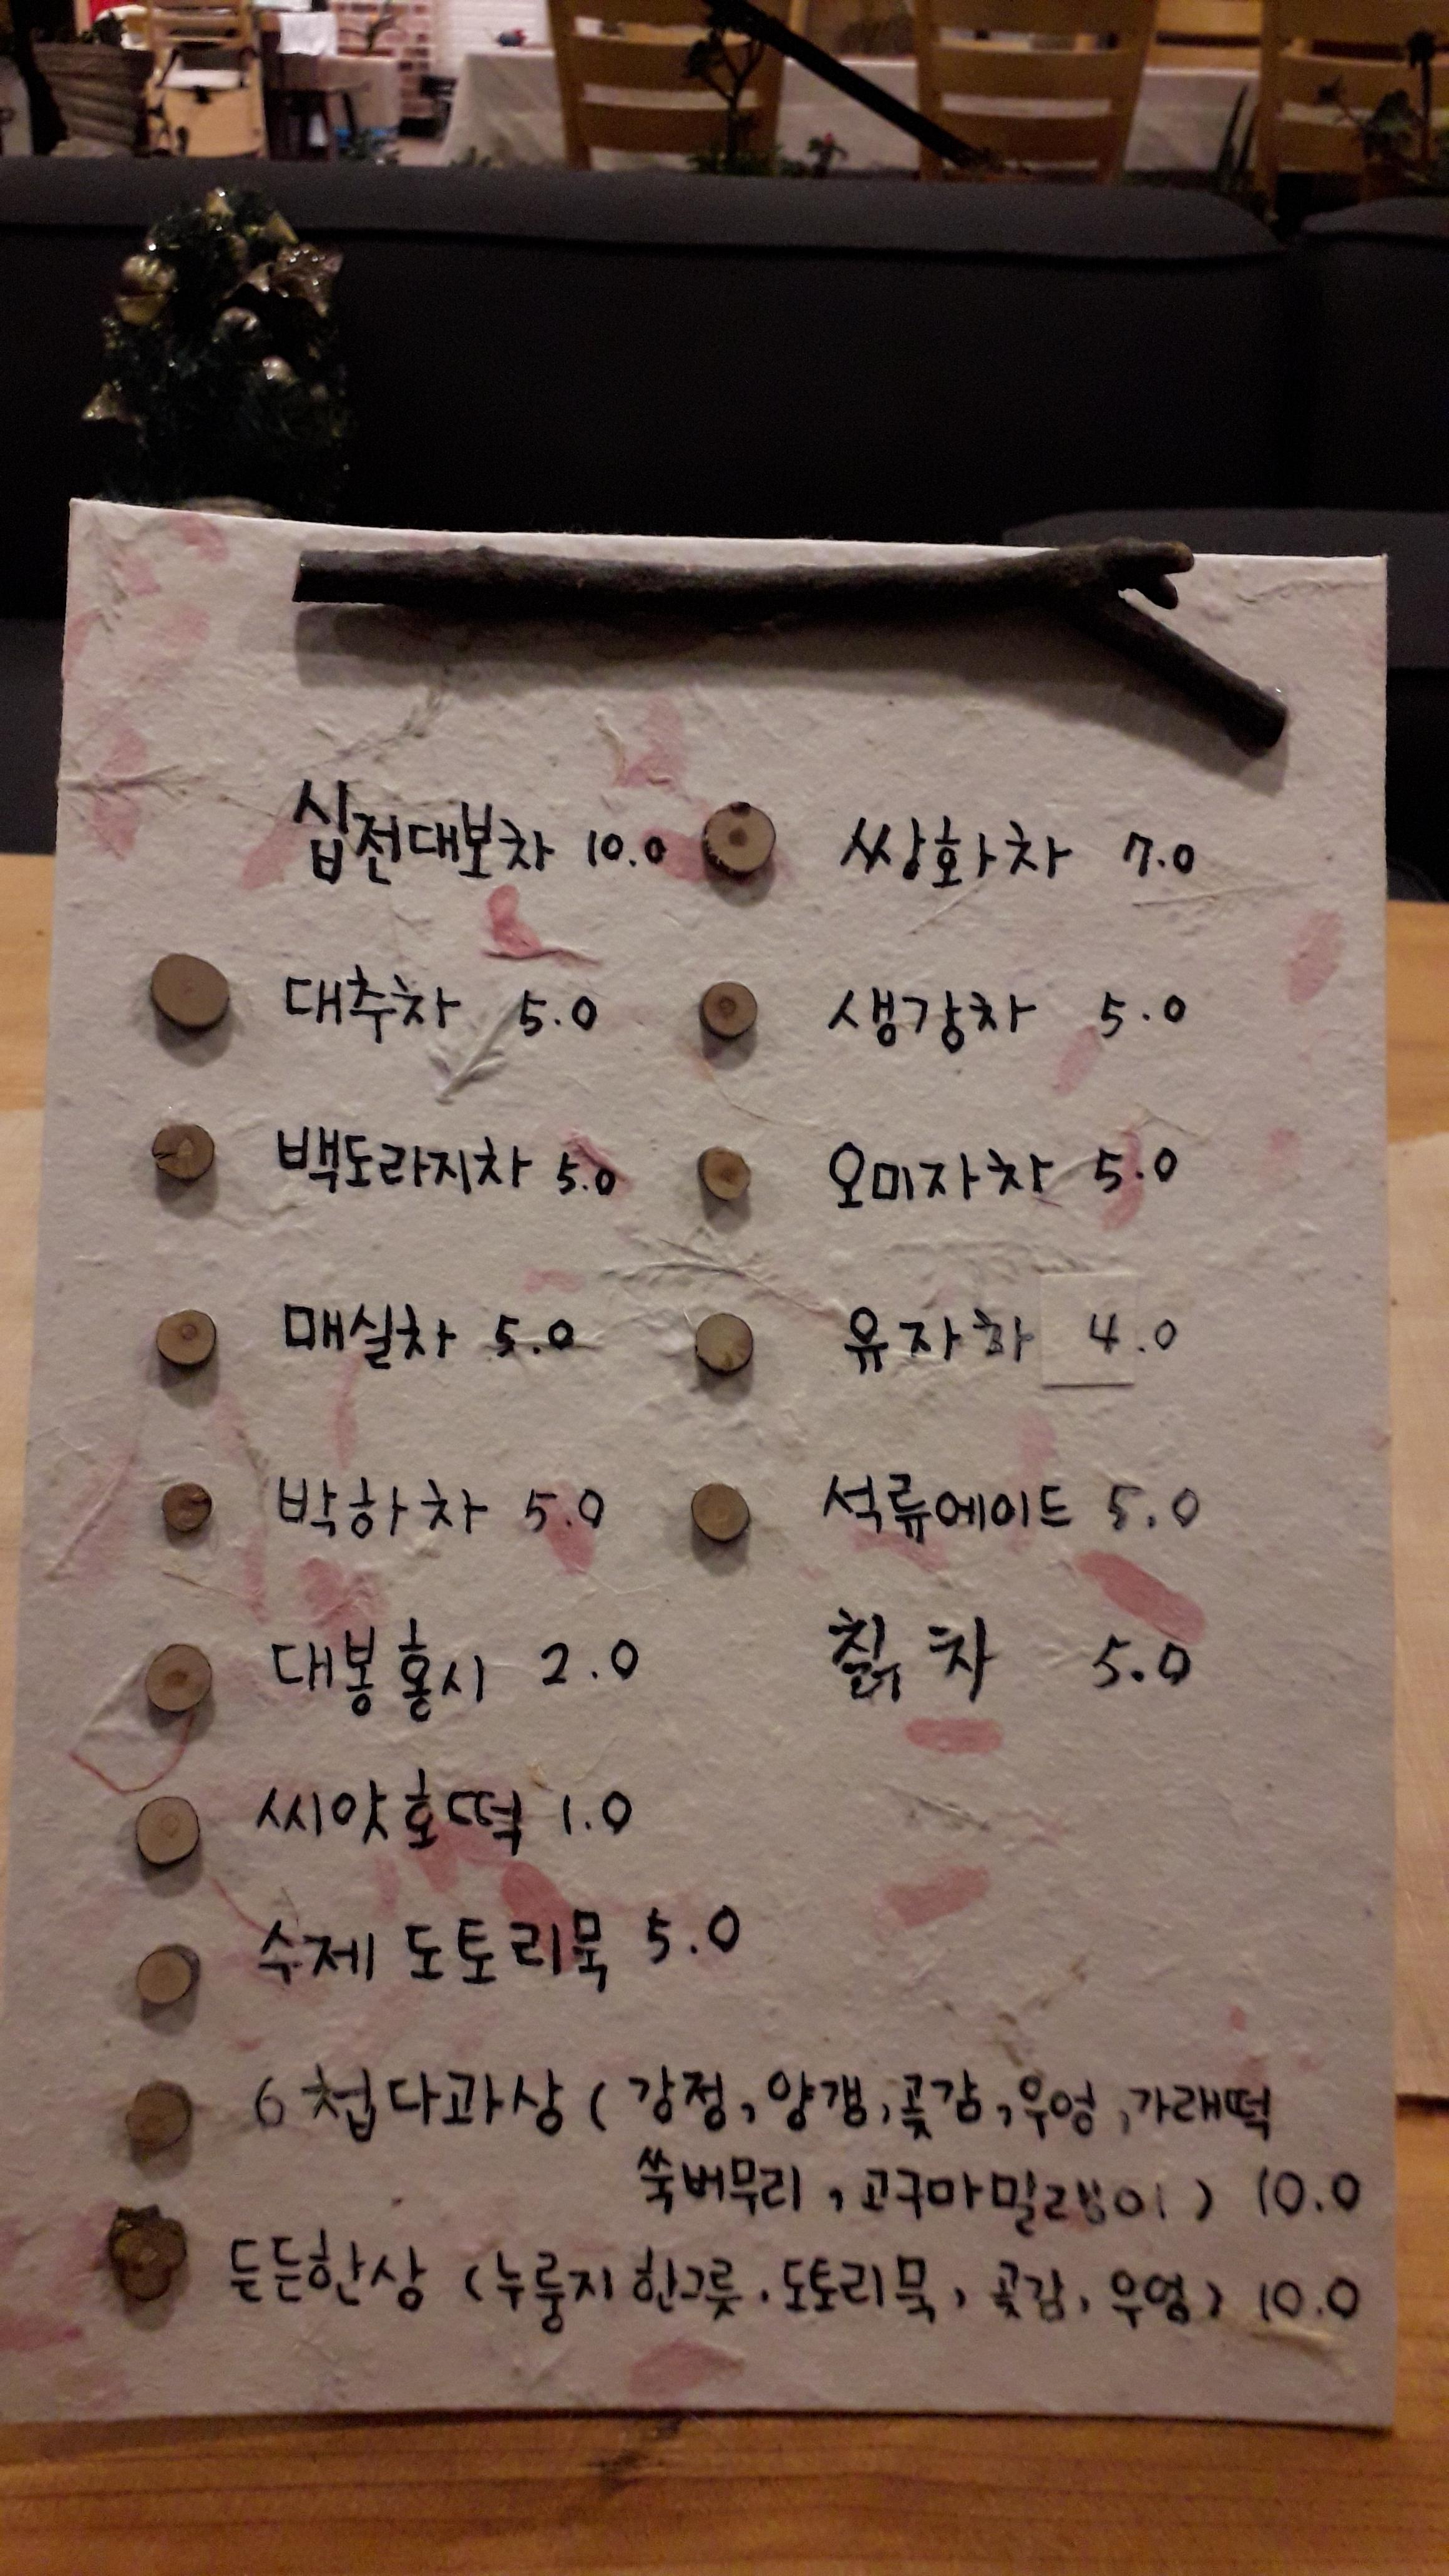 십전대보차 10.0 쌍화차 7.0
대추차 5.0 생강차 5.0
백도라지차 5.0 오미자차 5.0
매실차 5.0 유자차 4.0
박하차 5.0 석류에이드 5.0
대봉홍시 2.0 칡차 5.0
씨앗호떡 1.0
수제 도토리묵 5.0
6첩다과상 (강정, 양갱, 곶감, 우엉, 가래떡
쑥버무리, 고구마밀랍이) 10.0
든든한상 (누룽지 한그릇. 도토리묵, 곶감, 우엉) 10.0